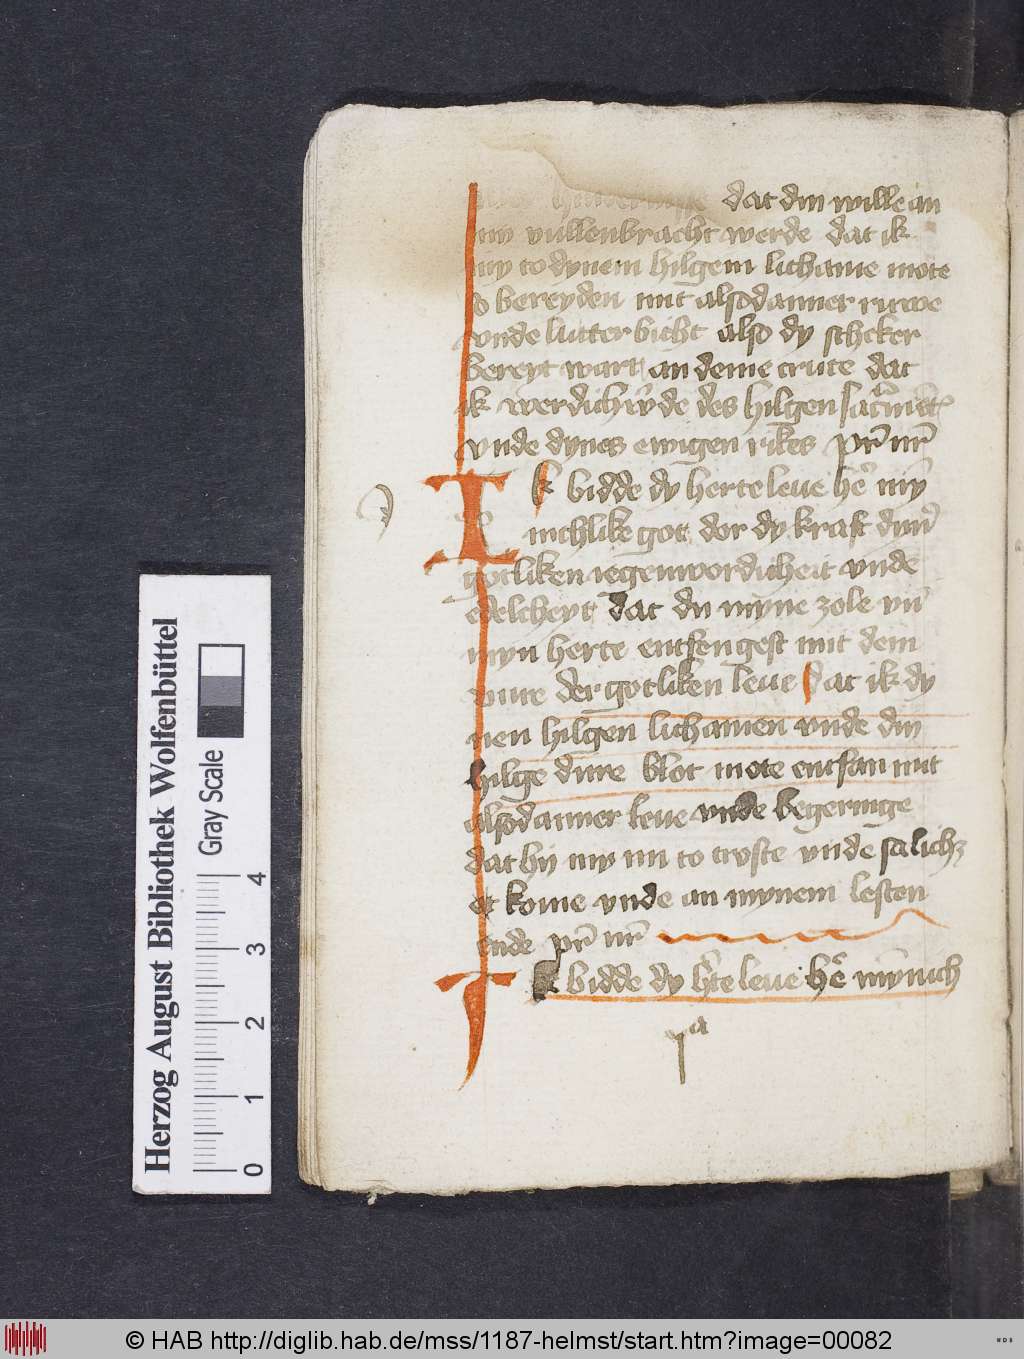 dat din wille an
my vullenbracht werde dat ik
my to dynem hilgem lichame mote
so bereyden mit alsodanner ruwe
vnde lutter bicht also dy schcker
bereyt wart an deme cruce dat
ik werdich w̄de des hilgen sacͣmēt
vnde dynes ewigen rikes pr̄ nr̄
Ik bidde dy herte leue he᷑ my̅
nichlike got dor dy kraft dyn᷑
gotliken iegenwordicheit vnde
edelcheyt dat du myne zele vn̄
myn herte entfengest mit dem
vure der gotliken leue dat ik dy
nen hilgen lichamen vnde din
hilge dure blot mote entfan mit
alsodanner leue vnde begeringe
dat hij my nu to troste vnde salich
et kome vnde an mynem lesten
ende pr̄ nr̄
Ik bidde dy h᷑te leue he᷑ my̅nich
Herzog August Bibliothek Wolfenbüttel
Gray Scale
0 1 2 3 4
© HAB http://diglib.hab.de/mss/1187-helmst/start.htm?image=00082
WDB